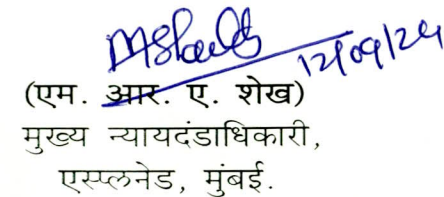 12/09/24
(एम. आर. ए. शेख)
मुख्य न्यायदंडाधिकारी,
एस्प्लनेड, मुंबई.